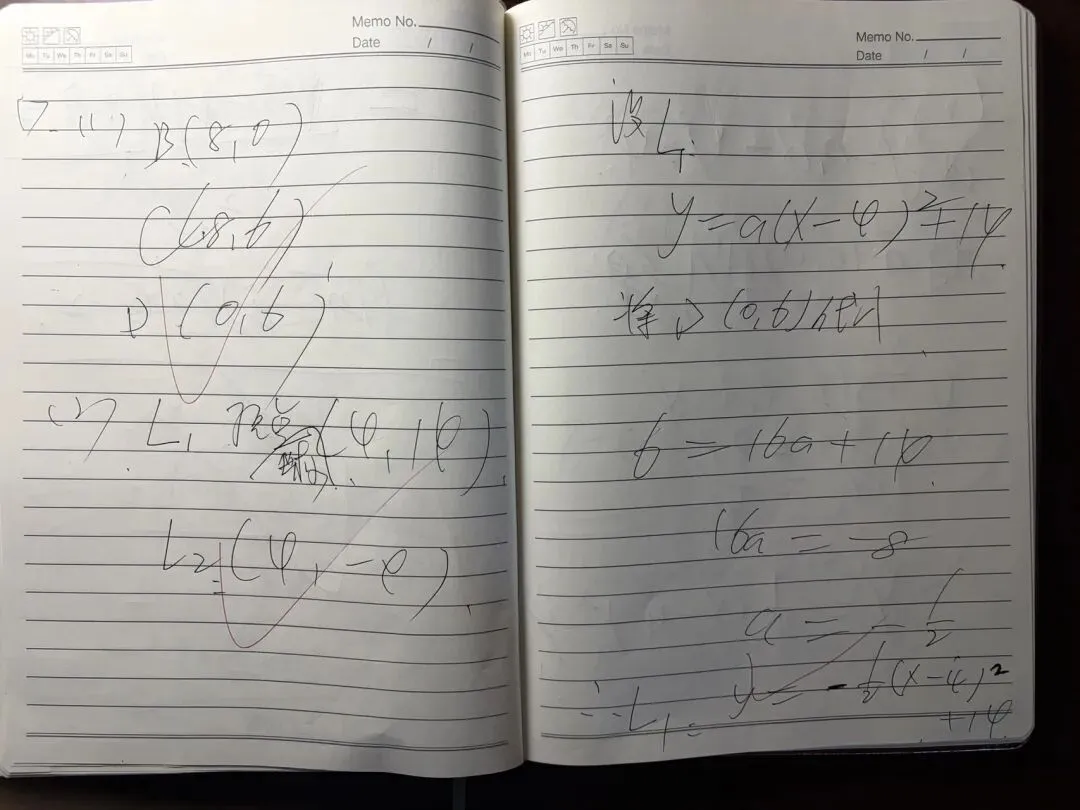 Memo No.
Date / /
Mo Tu We Th Fr Sa Su
7. (1) B(8,0)
C(8,6)
D(0,6)
(2) L₁ 顶点 (4,14)
L₂ (4,-8)
Memo No.
Date / /
Mo Tu We Th Fr Sa Su
设L₁:
y=a(x-4)²+14
将D(0,6)代入
6=16a+14
16a=-8
a=-1/2
∴L₁: y=-1/2(x-4)²
+14